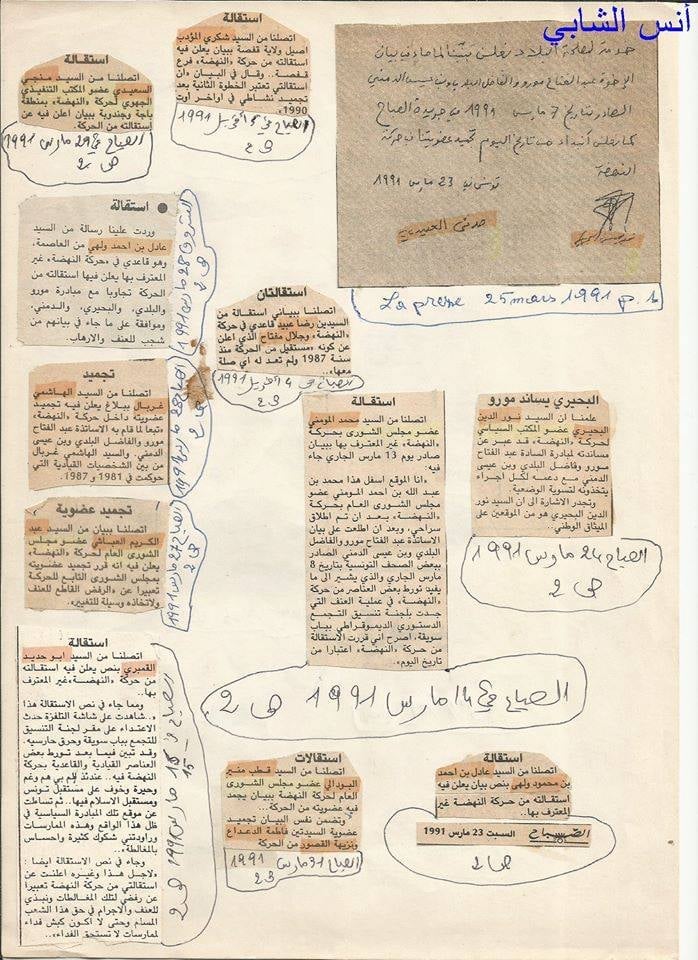 أنس الشابي
استقالة
اتصلنا من السيد شكري المؤدب
اصيل ولاية قفصة ببيان يعلن فيه
استقالته من حركة «النهضة» فرع
قفصة.. وقال في البيان «ان
استقالتي تعتبر الخطوة الثانية بعد
تجميد نشاطي في اواخر اوت
1990»
استقالة
اتصلنا من السيد منجي
السعيدي عضو المكتب التنفيذي
الجهوي لحركة «النهضة» بمنطقة
باجة وجندوبة ببيان اعلن فيه عن
استقالته من الحركة.
الصباح في 29 مارس 1991
ص 2
الصادر بتاريخ 7 مارس 1991 في جريدة الصباح
النهضة
تونس في 23 مارس 1991
La presse 25 mars 1991 p. 6
استقالة
وردت علينا رسالة من السيد
عادل بن احمد ولهي من العاصمة،
وهو قاعدي في «حركة النهضة» غير
المعترف بها يعلن فيها استقالته من
الحركة تجاوبا مع مبادرة مورو
والبلدي، والبحيري، والدمني،
وموافقة على ما جاء في بيانهم من
شجب للعنف والارهاب.
استقالتان
اتصلنا ببياني استقالة من
السيدين رضا عبيد قاعدي في حركة
«النهضة» وجلال مفتاح الذي اعلن
عن كونه «مستقيل من الحركة منذ
سنة 1987 ولم تعد له اي صلة
معها».
الصباح في 4 أفريل 1991
تجميد
اتصلنا من السيد الهاشمي
غربال ببلاغ يعلن فيه تجميد
عضويته داخل حركة «النهضة»
«تبعا لما قام به الاساتذة عبد الفتاح
مورو والفاضل البلدي وبن عيسى
الدمني. والسيد الهاشمي غربال
من بين الشخصيات القيادية التي
حوكمت في 1981 و1987.
تجميد عضوية
اتصلنا ببيان من السيد عبد
الكريم العباشي عضو مجلس
الشورى العام لحركة «النهضة»
يعلن فيه انه قرر تجميد عضويته
بمجلس الشورى التابع للحركة
تعبيرا عن «الرفض القاطع للعنف
ولاتخاذه وسيلة للتغيير».
الصباح 27 مارس 1991
استقالة
اتصلنا من السيد محمد المومني
عضو مجلس الشورى بحركة
«النهضة» غير المعترف بها ببيان
صادر يوم 13 مارس الجاري جاء
فيه:
«انا الموقع اسفل هذا محمد بن
عبد الله بن احمد المومني عضو
مجلس الشورى العام بحركة
«النهضة»، بعد ان تم اطلاق
سراحي، وبعد ان اطلعت على بيان
الاساتذة عبد الفتاح مورو والفاضل
البلدي وبن عيسى الدمني الصادر
ببعض الصحف التونسية بتاريخ 8
مارس الجاري والذي يشير الى ما
يفيد: تورط بعض العناصر من حركة
«النهضة»، في عملية العنف التي
جدت بلجنة تنسيق التجمع
الدستوري الديموقراطي بباب
سويقة، اصرح اني قررت الاستقالة
من حركة «النهضة» اعتبارا من
تاريخ اليوم».
الصباح في 14 مارس 1991 ص 2
البحيري يساند مورو
علمنا ان السيد نور الدين
البحيري عضو المكتب السياسي
لحركة «النهضة» قد عبر عن
مساندته لمبادرة السادة عبد الفتاح
مورو وفاضل البلدي وبن عيسى
الدمني مع دعمه لكل اجراء
يتخذونه لتسوية الوضعية.
وتجدر الاشارة الى ان السيد نور
الدين البحيري هو من الموقعين على
الميثاق الوطني.
الصباح 24 مارس 1991
ص 2
استقالة
اتصلنا من السيد ابو حديد
القمبري بنص يعلن فيه استقالته
من حركة «النهضة» غير المعترف
بها..
ومما جاء في نص الاستقالة هذا
«..شاهدت على شاشة التلفزة حدث
الاعتداء على مقر لجنة التنسيق
للتجمع بباب سويقة وحرق حارسيه.
وقد تبين فيما بعد تورط بعض
العناصر القيادية والقاعدية بحركة
النهضة فيه.. عندئذ الم بي هم وغم
وحيرة وخوف على مستقبل تونس
ومستقبل الاسلام فيها.. ثم تساءلت
عن موقع تلك المبادرة السياسية في
ظل هذا الواقع وهذه الممارسات
وراودتني شكوك كثيرة واحساس
بالمغالطة».
وجاء في نص الاستقالة ايضا :
«لاجل هذا وغيره اعلنت عن
استقالتي من حركة النهضة تعبيرا
عن رفضي لتلك المغالطات ونبذي
للعنف والاجرام في حق هذا الشعب
المسلم وحتى لا اكون كبش فداء
لممارسات لا تستحق الفداء».
استقالات
اتصلنا من السيد قطب منير
البودالي عضو مجلس الشورى
العام لحركة النهضة ببيان يجمد
فيه عضويته من الحركة..
وتضمن نفس البيان تجميد
عضوية السيدتين فاطمة الدعداع
ونزيهة القصور من الحركة
الصباح 31 مارس 1991
استقالة
اتصلنا من السيد عادل بن احمد
بن محمود ولهي بنص يعلن فيه
استقالته من حركة النهضة غير
المعترف بها..
الصباح السبت 23 مارس 1991
ص 2